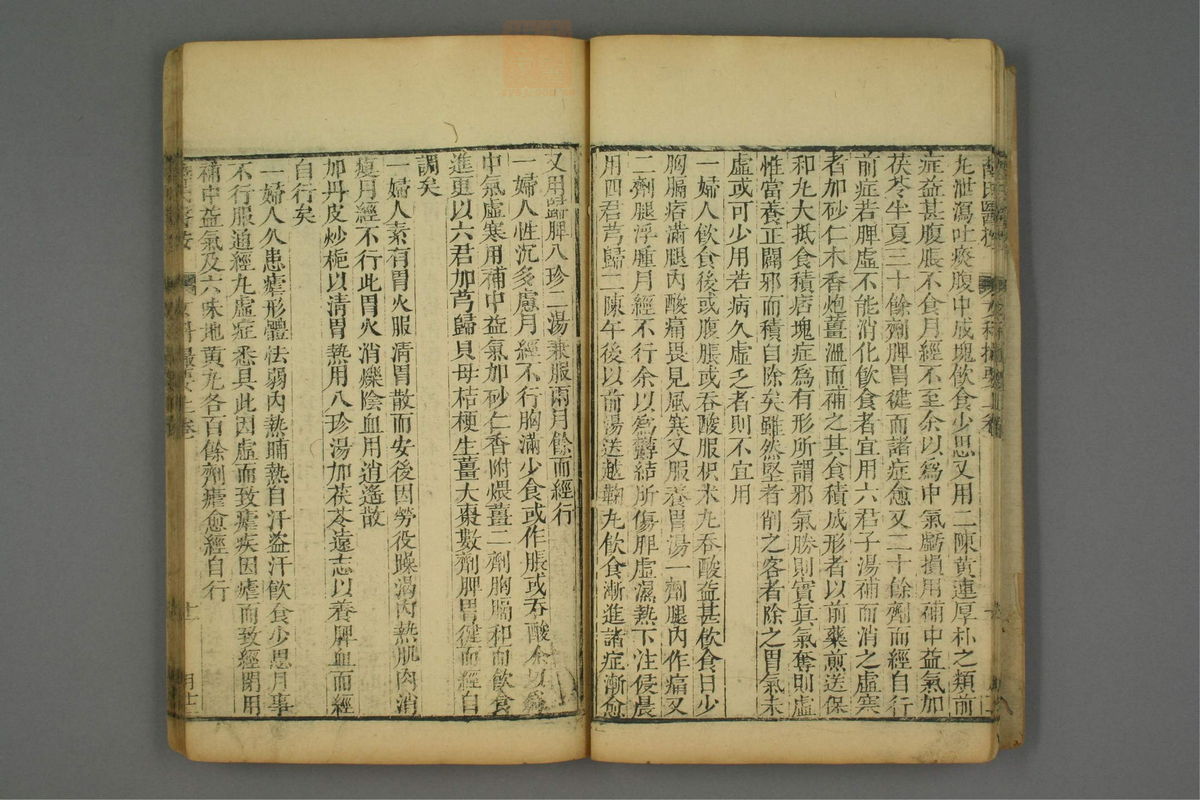 丸泄瀉吐痰腹中成塊飲食少思又用二陳黃連厚朴之類前
症益甚腹脹不食月經不至余以為中氣虧損用補中益氣加
茯苓半夏三十餘劑脾胃健而諸症愈又二十餘劑而經自行
前症若脾虛不能消化飲食者宜用六君子湯補而消之虛寒
者加砂仁木香炮薑溫而補之其食積成形者以前藥煎送保
和丸大抵食積痞塊症為有形所謂邪氣勝則實真氣奪則虛
惟當養正闢邪而積自除矣雖然堅者削之客者除之胃氣未
虛或可少用若病久虛乏者則不宜用
一婦人飲食後或腹脹或吞酸服枳朮丸吞酸益甚飲食日少
胸膈痞滿腿內酸痛畏見風寒又服養胃湯一劑腿內作痛又
二劑腿浮腫月經不行余以為鬱結所傷脾虛濕熱下注侵晨
用四君芎歸二陳午後以前湯送越鞠丸飲食漸進諸症漸愈
又用歸脾八珍二湯兼服兩月餘而經行
一婦人性沉多慮月經不行胸滿少食或作脹或吞酸余以為
中氣虛寒用補中益氣加砂仁香附煨薑二劑胸膈和而飲食
進更以六君加芎歸貝母桔梗生薑大棗數劑脾胃健而經自
調矣
一婦人素有胃火服清胃散而安後因勞役躁渴內熱肌肉消
瘦月經不行此胃火消爍陰血用逍遙散
加丹皮炒梔以清胃熱用八珍湯加茯苓遠志以養脾血而經
自行矣
一婦人久患瘧形體怯弱內熱晡熱自汗盜汗飲食少思月事
不行服通經丸虛症悉具此因虛而致瘧疾因瘧而致經閉用
補中益氣及六味地黃丸各百餘劑瘧愈經自行